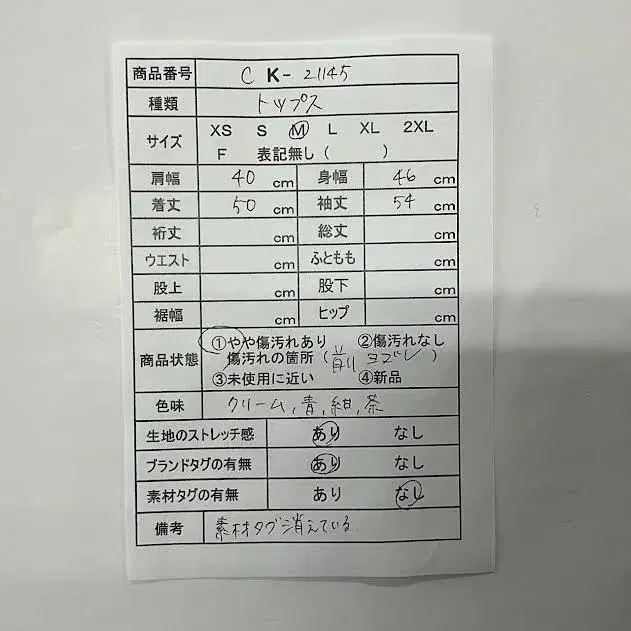 商品番号 C K- 21145
種類 トップス
サイズ XS S M L XL 2XL
F 表記無し ( )
肩幅 40 cm 身幅 46 cm
着丈 50 cm 袖丈 54 cm
裄丈 cm 総丈 cm
ウエスト cm ふともも cm
股上 cm 股下 cm
裾幅 cm ヒップ cm
商品状態 ①やや傷汚れあり ②傷汚れなし
傷汚れの箇所 (前 ヨゴレ)
③未使用に近い ④新品
色味 クリーム, 青, 紺, 茶
生地のストレッチ感 あり なし
ブランドタグの有無 あり なし
素材タグの有無 あり なし
備考 素材タグ消えている